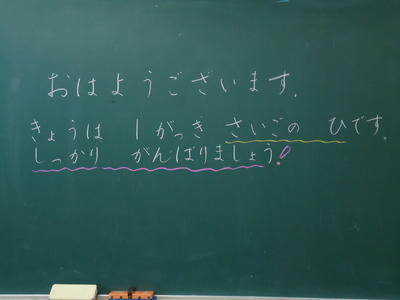 おはようございます.
きょうは 1がっき さいごの ひです.
しっかり がんばりましょう!